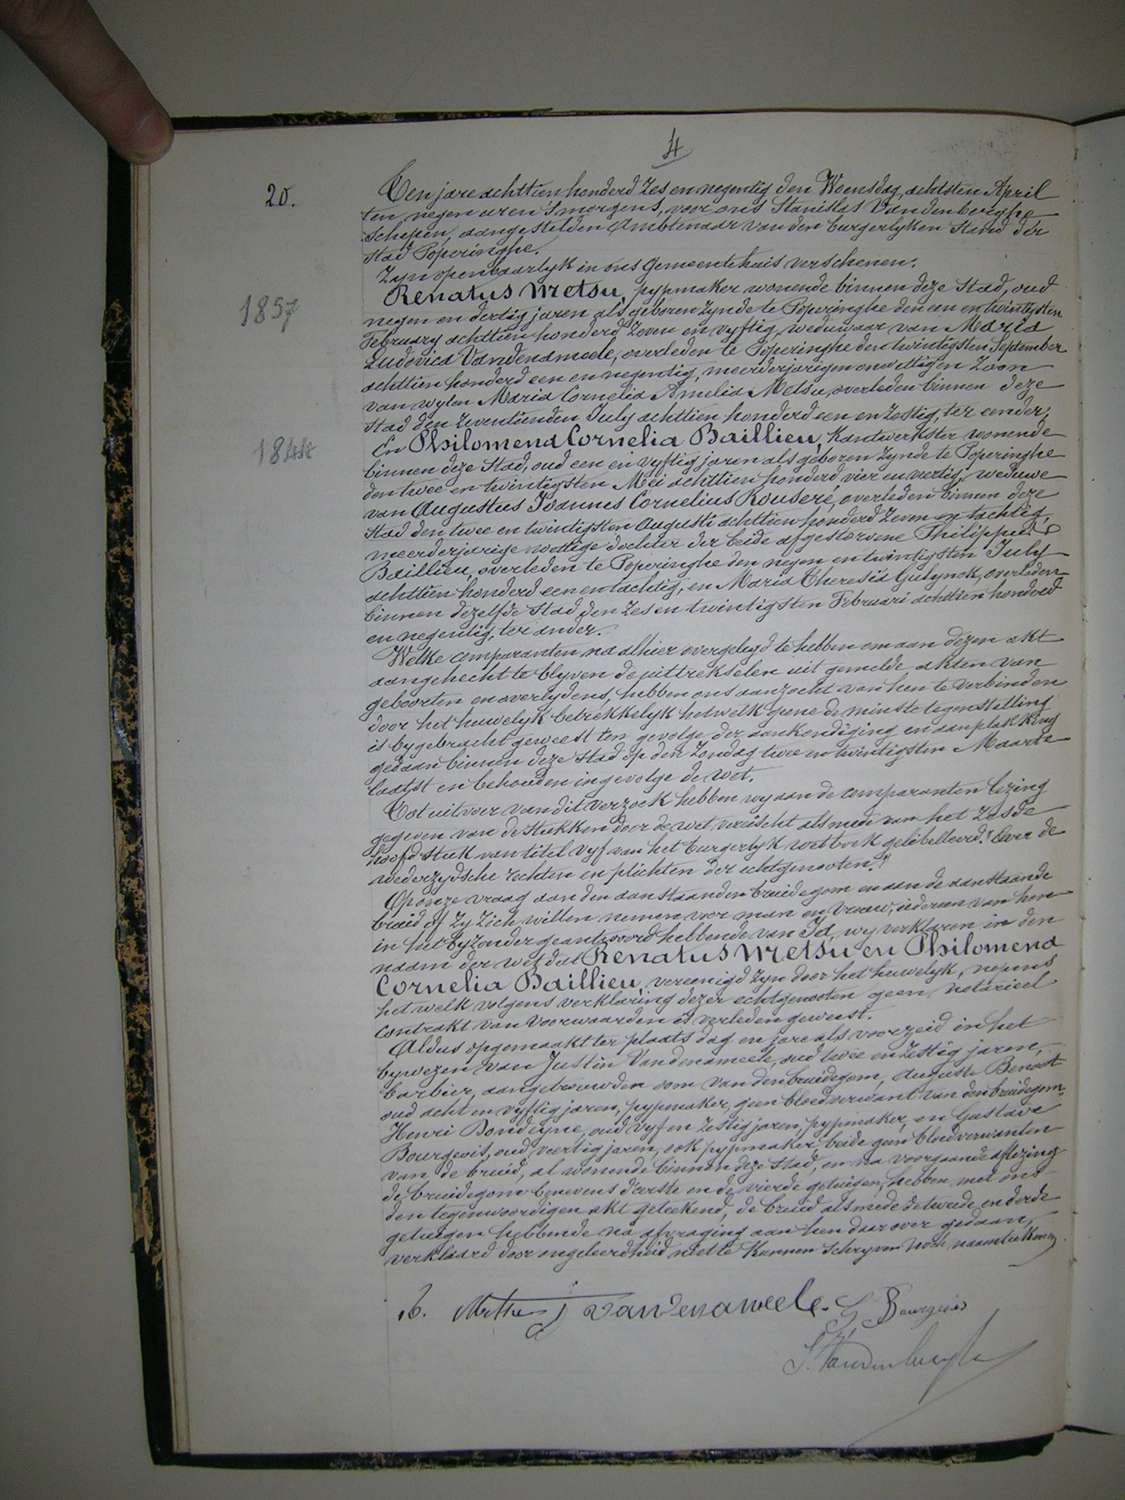 4
20.
Ten jare achttien honderd zes en negentig den Woensdag, achtsten April
ten negen uren 's morgens, voor ons Stanislas Vandenberghe
Schepen, aangestelden Ambtenaar van den burgerlyken Stand der
Stad Poperinghe.
Zyn openbaarlyk in ons Gemeentehuis verschenen:
1857
Renatus Metsu, pypmaker wonende binnen deze Stad, oud
negen en dertig jaren als geboren zynde te Poperinghe den een en twintigsten
February achttien honderd zeven en vyftig, weduwaar van Maria
Ludovica Vandenameele, overleden te Poperinghe den twintigsten September
achttien honderd een en negentig, meerderjarigen onwettigen Zoon
van wylen Maria Cornelia Amelia Metsu, overleden binnen deze
Stad den zeventienden July achttien honderd een en zestig, ter eender;
1844
En Philomena Cornelia Baillieu, Kantwerkster wonende
binnen deze Stad, oud een en vyftig jaren als geboren zynde te Poperinghe
den twee en twintigsten Mei achttien honderd vier en vertig, weduwe
van Augustus Joannes Cornelius Rouseré, overleden binnen deze
Stad den twee en twintigsten Augusti achttien honderd zeven en tachtig,
meerderjarige wettige dochter der beide afgestorvene Philippus
Baillieu, overleden te Poperinghe den negen en twintigsten July
achttien honderd een en tachtig, en Maria Theresia Ghelynck, overleden
binnen dezelfde Stad den zes en twintigsten Februari achttien honderd
en negentig, ter ander.
Welke comparanten na alhier overgelegd te hebben om aan dezen akt
aangehecht te blyven de uittrekselen uit gemelde akten van
geboorten en overlydens, hebben ons aanzocht van hen te verbinden
door het huwelyk betrekkelyk hetwelk geene de minste tegenstelling
is bygebracht geweest ten gevolge der aankondiging en aanplakking
gedaan binnen deze Stad op den Zondag twee en twintigsten Maarte
laatst en behouden ingevolge de wet.
Tot uitvoer van dit verzoek hebben wy aan de comparanten lezing
gegeven van de stukken door de wet vereischt alsmede van het Zesde
hoofdstuk van titel vyf van het burgerlyk wetboek gelibelleerd: "Over de
wederzydsche rechten en plichten der echtgenooten."
Op onze vraag aan den aanstaanden bruidegom en aan de aanstaande
bruid of zy zich willen nemen voor man en vrouw, iedereen van hen
in het byzonder geantwoord hebbende van Ja, wy verklaren in den
naam der wet dat Renatus Metsu en Philomena
Cornelia Baillieu, vereenigd zyn door het huwelyk, nopens
het welk volgens verklaring dezer echtgenooten geen notarieel
Contrakt van voorwaarden is verleden geweest.
Aldus opgemaakt ter plaats dag en jare als voorzeid in het
bywezen van Justin Vandenameele, oud twee en zestig jaren,
barbier, aangetrouwden oom van den bruidegom, Auguste Benoot
oud acht en vyftig jaren, pypmaker, geen bloedverwant van den bruidegom,
Henri Bondigne, oud vyf en zestig jaren, pypmaker, en Gustave
Bourgeois, oud veertig jaren, ook pypmaker beide geen bloedverwanten
van de bruid, al wonende binnen deze Stad, en na voorgaande aflezing
de bruidegom benevens d'eerste en de vierde getuigen hebben met ons
den tegenwoordigen akt geteekend, de bruid alsmede de tweede en derde
getuigen hebbende na afvraging aan hen daarover gedaan,
verklaard door ongeleerdheid niet te kunnen schryven noch naamteekenen.
R. Metsu J Vandenameele. G. Bourgeois
S. Vandenberghe